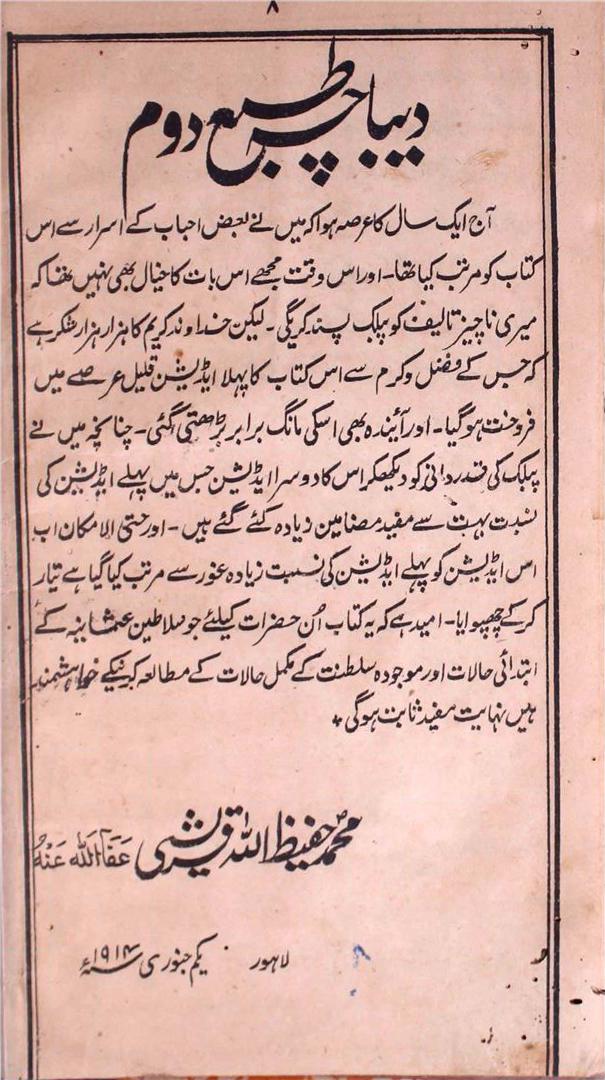 ۸
دیباچہ طبع دوم
آج ایک سال کا عرصہ ہوا کہ میں نے بعض احباب کے اسرار سے اس
کتاب کو مرتب کیا تھا۔ اور اس وقت مجھے اس بات کا خیال بھی نہیں تھا کہ
میری ناچیز تالیف کو پبلک پسند کریگی۔ لیکن خداوند کریم کا ہزار ہزار شکر ہے
کہ جس کے فضل و کرم سے اس کتاب کا پہلا ایڈیشن قلیل عرصے میں
فروخت ہو گیا۔ اور آیندہ بھی اسکی مانگ برابر بڑھتی گئی۔ چنانچہ میں نے
پبلک کی قدردانی کو دیکھکر اس کا دوسرا ایڈیشن جس میں پہلے ایڈیشن کی
نسبت بہت سے مفید مضامین زیادہ کئے گئے ہیں۔ اور حتی الامکان اب
اس ایڈیشن کو پہلے ایڈیشن کی نسبت زیادہ غور سے مرتب کیا گیا ہے تیار
کر کے چھپوایا۔ امید ہے کہ یہ کتاب اُن حضرات کیلئے جو سلاطین عثمانیہ کے
ابتدائی حالات اور موجودہ سلطنت کے مکمل حالات کے مطالعہ کرنیکے خواہشمند
ہیں نہایت مفید ثابت ہوگی +
محمد حفیظ اللہ قریشی عَفَا اللّٰہ عَنْہُ
لاہور یکم جنوری ۱۹۱۴ء